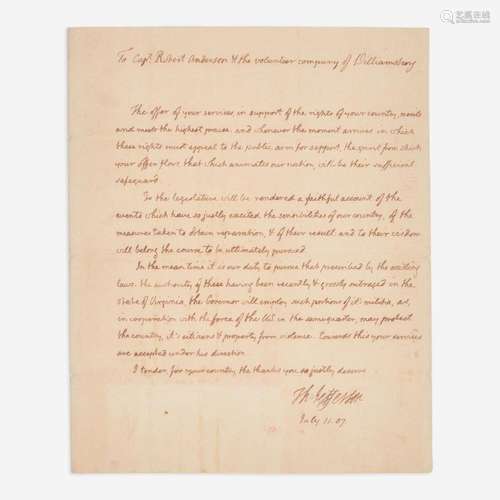 艺典在线
To Capt. Robert Anderson & the volunteer company of Williamsburg
The offer of your services, in support of the rights of your country, merits
and meets the highest praise. and whenever the moment arrives in which
these rights must appeal to the public arm for support, the spirit from which
your offer flows, that which animates our nation, will be their sufficient
safeguard.
To the legislature will be rendered a faithful account of the
events which have so justly excited the sensibilities of our country, of the
measures taken to obtain reparation, & of their result. and to their wisdom
will belong the course to be ultimately pursued.
In the mean time it is our duty to pursue that prescribed by the existing
laws. the authority of these having been recently & grossly outraged in the
state of Virginia, the Governor will employ such portions of it's militia, as,
in cooperation with the force of the US. in the same quarter, may protect
the country, it's citizens & property from violence. towards this your services
are accepted under his direction.
I tender, for your country the thanks you so justly deserve
Th: Jefferson
July 11. 07.